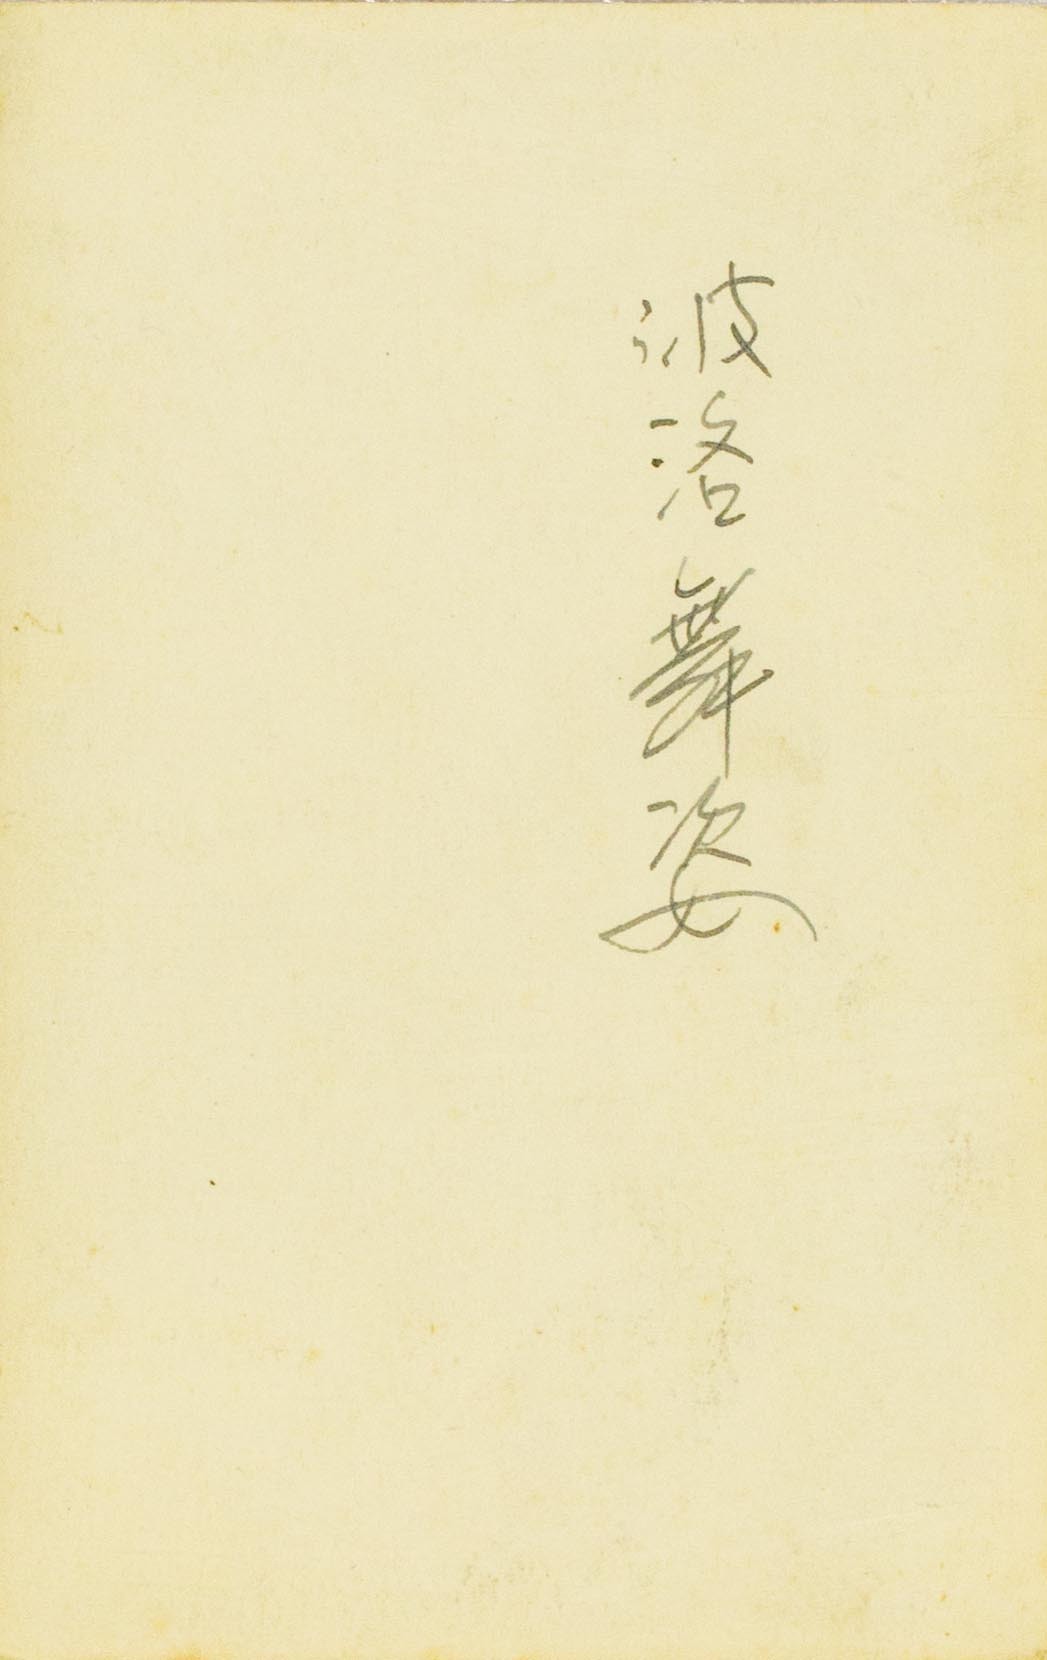 波洛舞姿